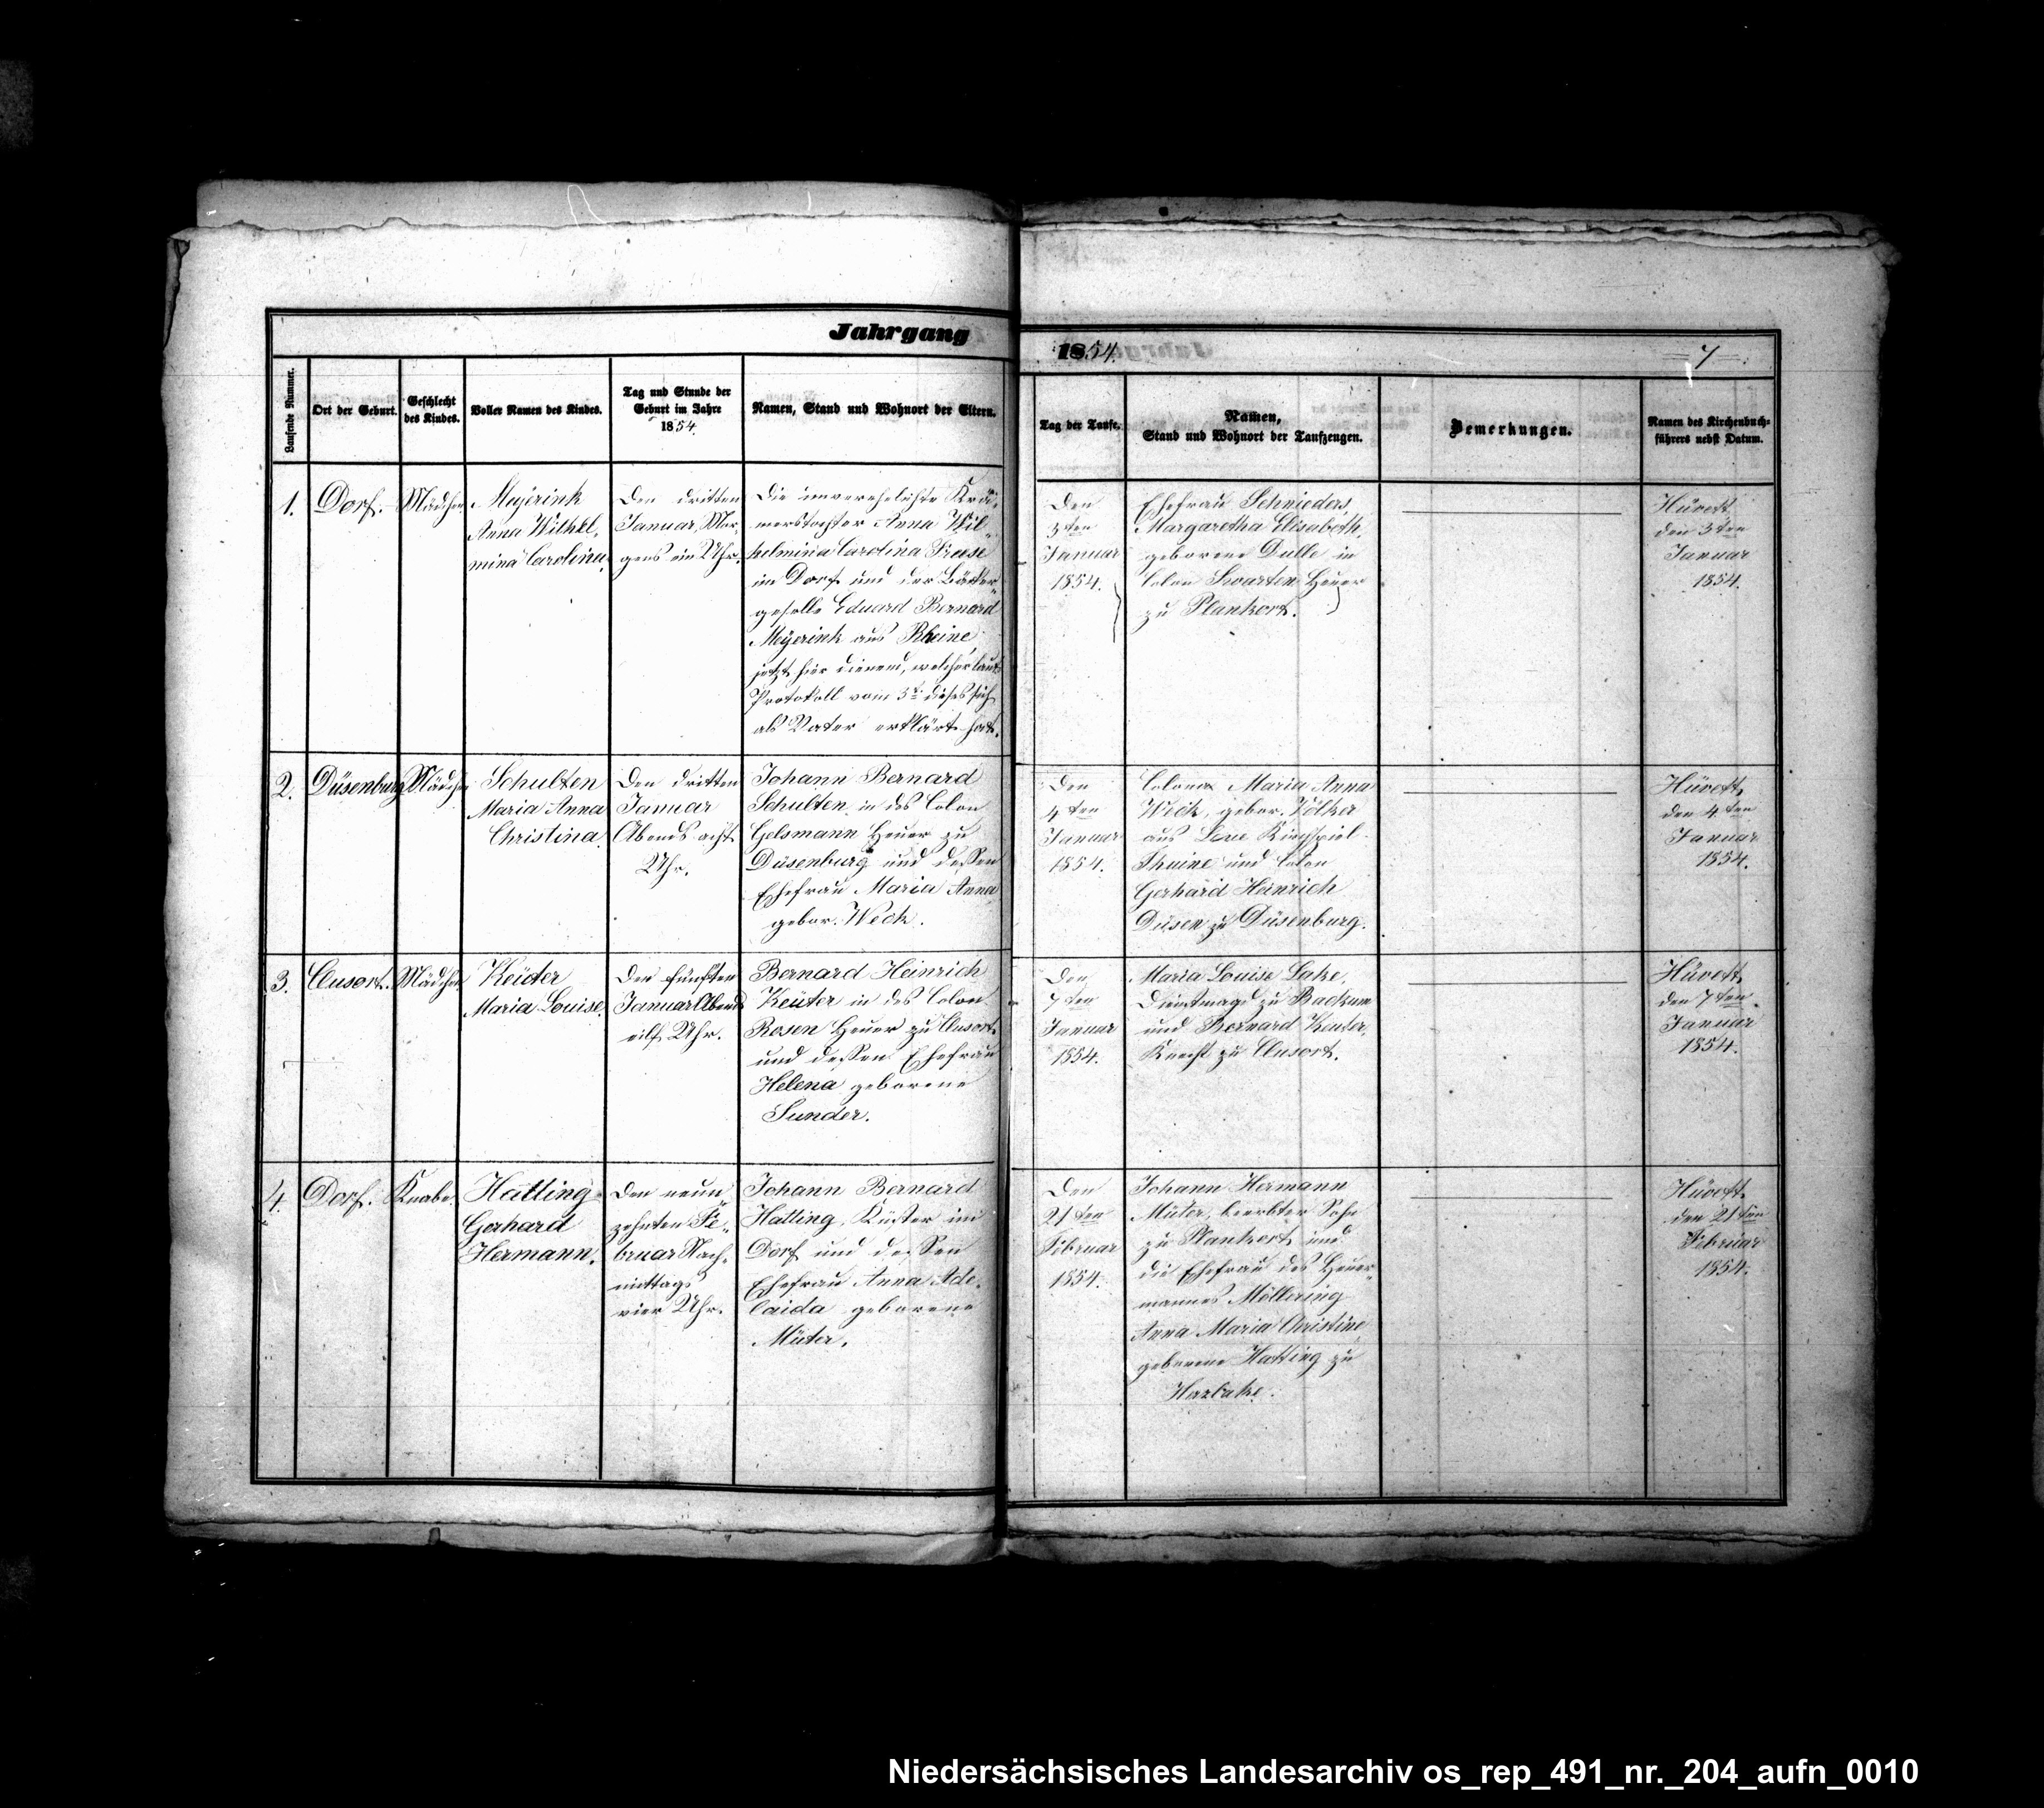 Jahrgang
1854.
7
Laufende Nummer.
Ort der Geburt.
Geschlecht
des Kindes.
Voller Namen des Kindes.
Tag und Stunde der
Geburt im Jahre
1854.
Namen, Stand und Wohnort der Eltern.
Tag der Taufe.
Namen,
Stand und Wohnort der Taufzeugen.
Bemerkungen.
Namen des Kirchenbuch-
führers nebst Datum.
1.
Dorf.
Mädchen.
Meyerink
Anna Wilhel-
mina Carolina.
Den dritten
Januar, Mor-
gens ein Uhr.
Die unverehelichte Krä-
merstochter Anna Wil-
helmina Carolina Preise
im Dorf und der Bäcker-
geselle Eduard Bernard
Meyerink aus Rheine,
jetzt hier dienend, welcher laut
Protokoll vom 5t. dieses sich
als Vater erklärt hat.
Den
3ten
Januar
1854.
Ehefrau Schnieders,
Margaretha Elisabeth,
geborene Dulle in
Colon Swarten Heuer
zu Plankort.
Hüvett,
den 3ten
Januar
1854.
2.
Düsenburg
Mädchen
Schulten
Maria Anna
Christina.
Den dritten
Januar
Abends acht
Uhr.
Johann Bernard
Schulten in des Colon
Gelsmann Heuer zu
Düsenburg und dessen
Ehefrau Maria Anna
gebor. Weck.
Den
4ten
Januar
1854.
Colona Maria Anna
Weck, gebor. Völker
aus Kirchspiel
Thuine und Colon
Gerhard Heinrich
Düsen zu Düsenburg.
Hüvett,
den 4ten
Januar
1854.
3.
Clusort.
Mädchen
Keüter
Maria Louise.
Den fünften
Januar Abends
eilf Uhr.
Bernard Heinrich
Keüter in des Colon
Rosen Heuer zu Clusort
und dessen Ehefrau
Helena geborene
Sunder.
Den
7ten
Januar
1854.
Maria Louise Lake,
Dienstmagd zu Backum
und Bernard Keuter,
Knecht zu Clusort.
Hüvett,
den 7ten
Januar
1854.
4.
Dorf.
Knabe.
Hatting
Gerhard
Hermann.
Den neun-
zehnten Fe-
bruar Nach-
mittags
vier Uhr.
Johann Bernard
Hatting, Küster im
Dorf und dessen
Ehefrau Anna Ade-
laida geborene
Müter.
Den
21ten
Februar
1854.
Johann Hermann
Müter, beerbter Sohn
zu Plankort und
die Ehefrau des Heuer-
mannes Möllering
Anna Maria Christine
geborene Hatting zu
Hüvett,
den 21ten
Februar
1854.
Niedersächsisches Landesarchiv os_rep_491_nr._204_aufn_0010